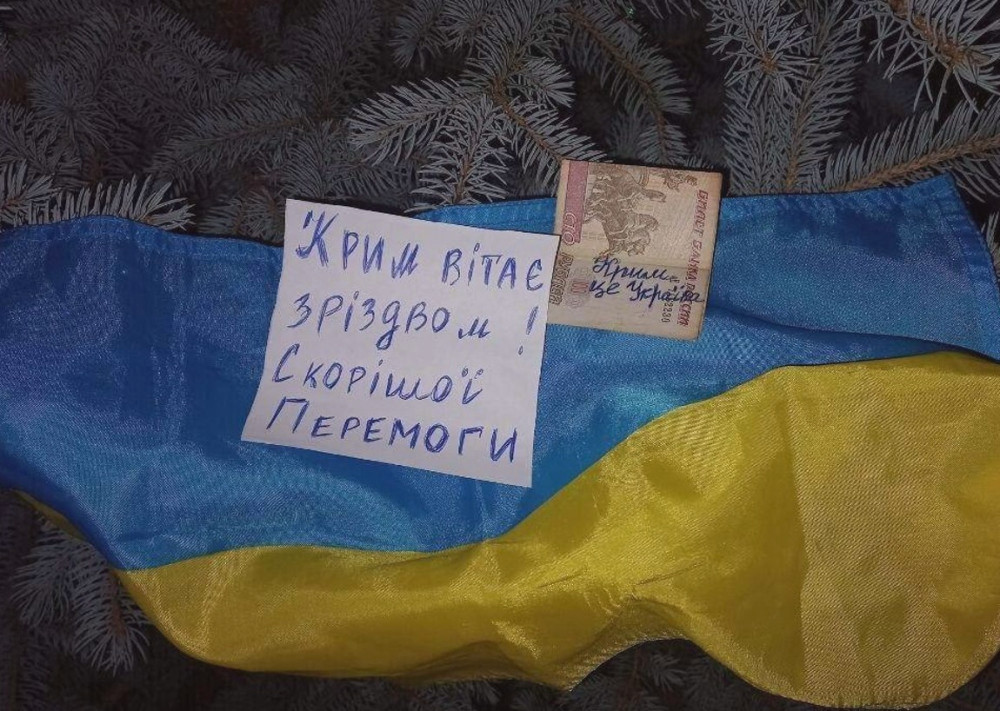 Крим вітає
зріздвом!
Скорішої
Перемоги
СТО
РУБЛЕЙ
БИЛЕТ БАНКА РОССИИ
Крим
це Україна